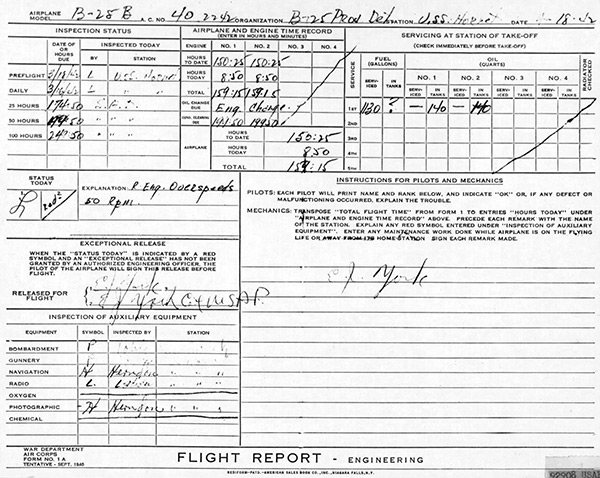 AIRPLANE MODEL B-25 B A.C. NO. 40.2242 ORGANIZATION B-25 Prod Det STATION U.S.S. Hornet DATE 18-42
INSPECTION STATUS
DATE OF OR HOURS DUE INSPECTED TODAY
SYMBOL STATION
PREFLIGHT 3/18/42 L U.S.S. Hornet
DAILY L " "
25 HOURS 174:50
50 HOURS
100 HOURS 50
AIRPLANE AND ENGINE TIME RECORD
(ENTER IN HOURS AND MINUTES)
ENGINE NO. 1 NO. 2 NO. 3 NO. 4
HOURS TO DATE 150:25 150:25
HOURS TODAY 8:50 8:50
TOTAL 159:15 159:15
OIL CHANGE DUE Eng. Change
149:50 149:50
AIRPLANE
HOURS TO DATE 150:25
HOURS TODAY 8:50
TOTAL 159:15
SERVICING AT STATION OF TAKE-OFF
(CHECK IMMEDIATELY BEFORE TAKE-OFF)
FUEL (GALLONS) OIL (QUARTS) RADIATOR CHECKED
NO. 1 NO. 2 NO. 3 NO. 4
SERVICED IN TANKS SERVICED IN TANKS SERVICED IN TANKS SERVICED IN TANKS SERVICED IN TANKS
1ST 1130 ? — 140 — 140
2ND
3RD
4TH
5TH
STATUS TODAY
L
EXPLANATION: R. Eng. Overspeeds
50 Rpm.
EXCEPTIONAL RELEASE
WHEN THE "STATUS TODAY" IS INDICATED BY A RED
SYMBOL AND AN "EXCEPTIONAL RELEASE" HAS NOT BEEN
GRANTED BY AN AUTHORIZED ENGINEERING OFFICER, THE
PILOT OF THE AIRPLANE WILL SIGN THIS RELEASE BEFORE
FLIGHT.
RELEASED FOR FLIGHT
E J York
INSPECTION OF AUXILIARY EQUIPMENT
EQUIPMENT SYMBOL INSPECTED BY STATION
BOMBARDMENT P
GUNNERY
NAVIGATION H Herndon " "
RADIO L " "
OXYGEN
PHOTOGRAPHIC H Herndon " "
CHEMICAL
INSTRUCTIONS FOR PILOTS AND MECHANICS
PILOTS: EACH PILOT WILL PRINT NAME AND RANK BELOW, AND INDICATE "OK" OR, IF ANY DEFECT OR
MALFUNCTIONING OCCURRED, EXPLAIN THE TROUBLE.
MECHANICS: TRANSPOSE "TOTAL FLIGHT TIME" FROM FORM 1 TO ENTRIES "HOURS TODAY" UNDER
"AIRPLANE AND ENGINE TIME RECORD" ABOVE. PRECEDE EACH REMARK WITH THE NAME
OF THE STATION. EXPLAIN ANY RED SYMBOL ENTERED UNDER "INSPECTION OF AUXILIARY
EQUIPMENT". ENTER ANY MAINTENANCE WORK DONE WHILE AIRPLANE IS ON THE FLYING
LINE OR AWAY FROM ITS HOME STATION. SIGN EACH REMARK MADE.
E J York
WAR DEPARTMENT
AIR CORPS
FORM NO. 1 A
TENTATIVE - SEPT. 1940
FLIGHT REPORT - ENGINEERING
REDIFORM-PATD.-AMERICAN SALES BOOK CO., INC., NIAGARA FALLS, N.Y.
USAF